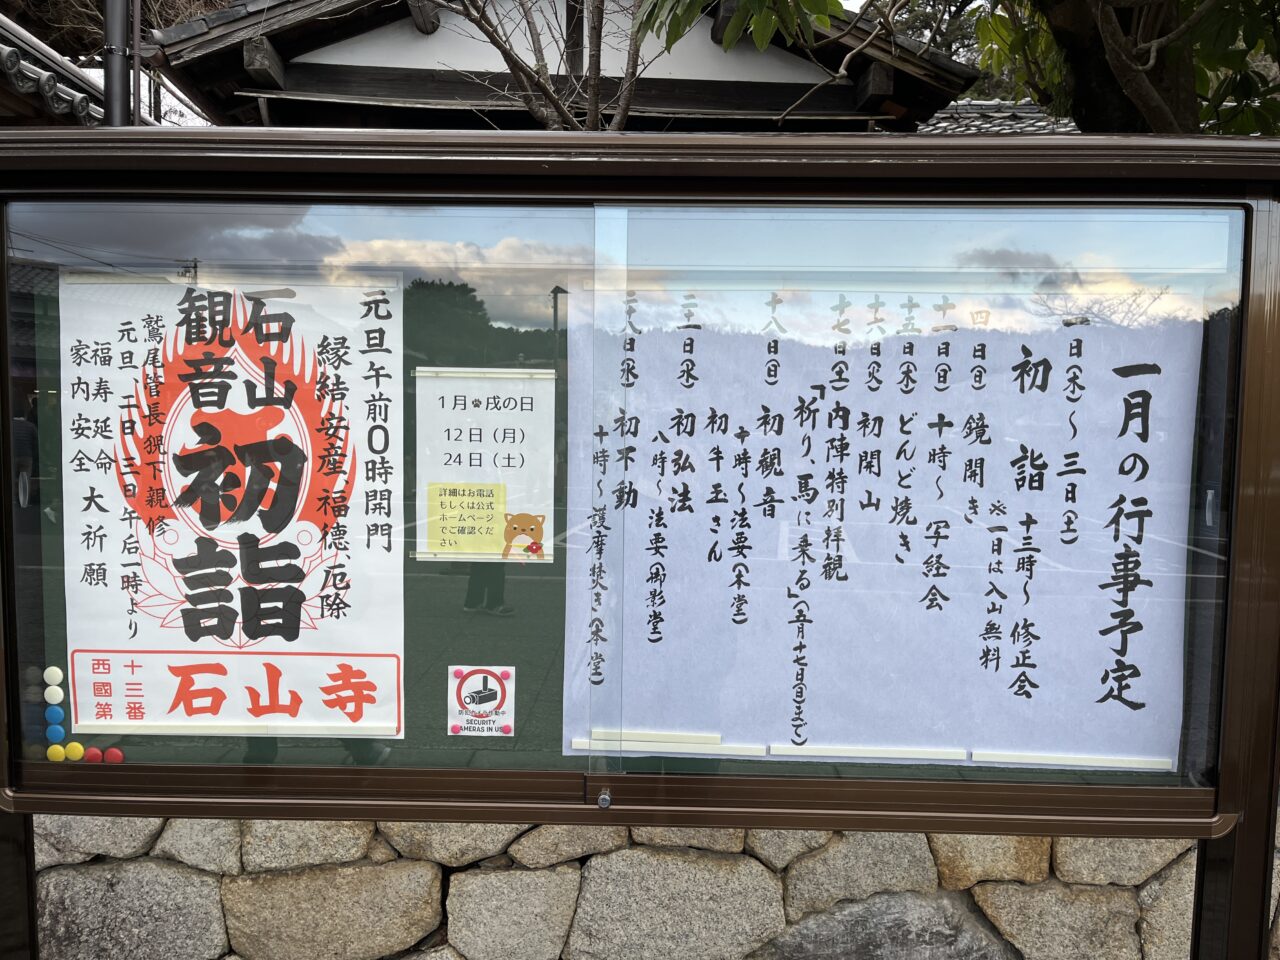 一月の行事予定
一日(木)～三日(土)
初詣 十三時～修正会
※一日は入山無料
四日(日) 鏡開き
十一日(日) 十時～写経会
十五日(木) どんど焼き
十六日(火) 初開山
十七日(土) 内陣特別拝観
「祈り、馬に乗る」(五月十七日(日)まで)
十八日(日) 初観音
十時～法要(本堂)
初牛玉さん
日(水) 初弘法
八時～法要(御影堂)
二十八日(水) 初不動
十時～護摩焚き(本堂)
元旦午前0時開門
縁結、安産、福徳、厄除
石山
観音
初詣
鷲尾管長猊下親修
元旦、二日、三日午后一時より
福寿延命
家内安全
大祈願
西國第
十三番
石山寺
1月戌の日
12日(月)
24日(土)
詳細はお電話
もしくは公式
ホームページ
でご確認くだ
さい
防犯カメラ作動中
SECURITY
CAMERAS IN USE